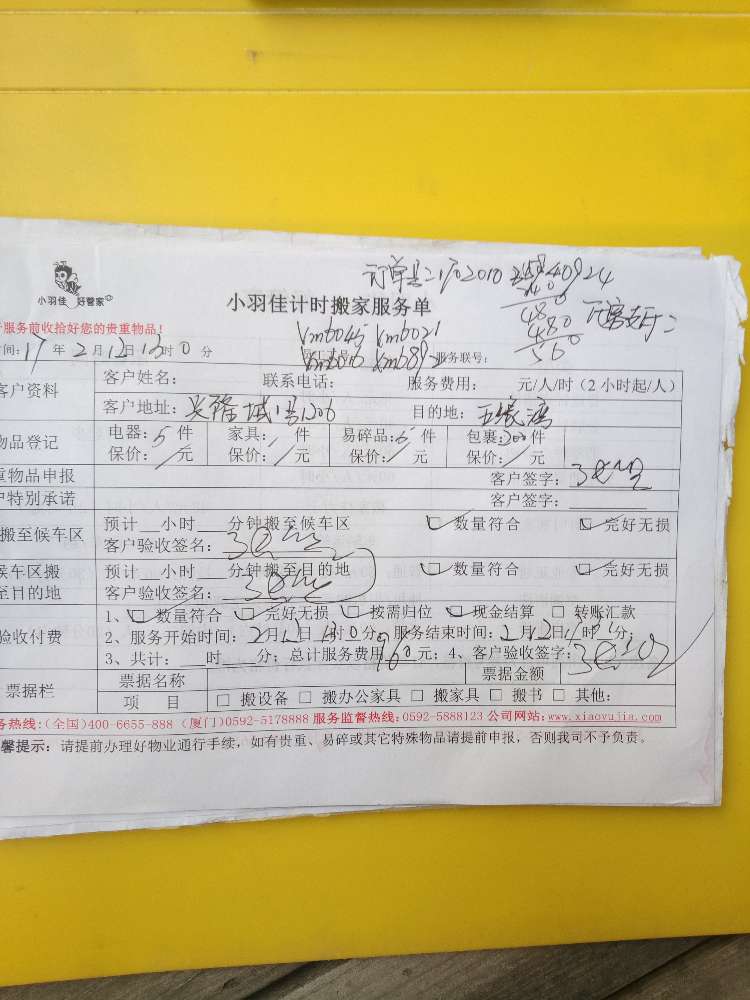 小羽佳 好管家
订单号:
小羽佳计时搬家服务单
480
480
服务前收拾好您的贵重物品!
560
间:17年2月12日13时0分
Xm6045 Xm6021
服务联号:
客户资料
客户姓名: 联系电话: 服务费用: 元/人/时(2小时起/人)
客户地址: 目的地:五缘湾
物品登记
电器:5件 家具: 件 易碎品:5件 包裹:200件
保价:/元 保价:/元 保价:/元 保价:/元
重物品申报 客户签字:
户特别承诺 客户签字:
搬至候车区
预计__小时___分钟搬至候车区 □数量符合 □完好无损
客户验收签名:
候车区搬
至目的地
预计__小时___分钟搬至目的地 □数量符合 □完好无损
客户验收签名:
验收付费
1、□数量符合 □完好无损 □按需归位 □现金结算 □转账汇款
2、服务开始时间:2月12日13时0分,服务结束时间:2月12日 时 分;
3、共计:___时___分;总计服务费用960元;4、客户验收签字:
票据栏
票据名称 票据金额
项 目 □搬设备 □搬办公家具 □搬家具 □搬书 □其他:
务热线:(全国)400-6655-888 (厦门)0592-5178888 服务监督热线:0592-5888123 公司网站:www.xiaoyujia.com
馨提示:请提前办理好物业通行手续,如有贵重、易碎或其它特殊物品请提前申报,否则我司不予负责。